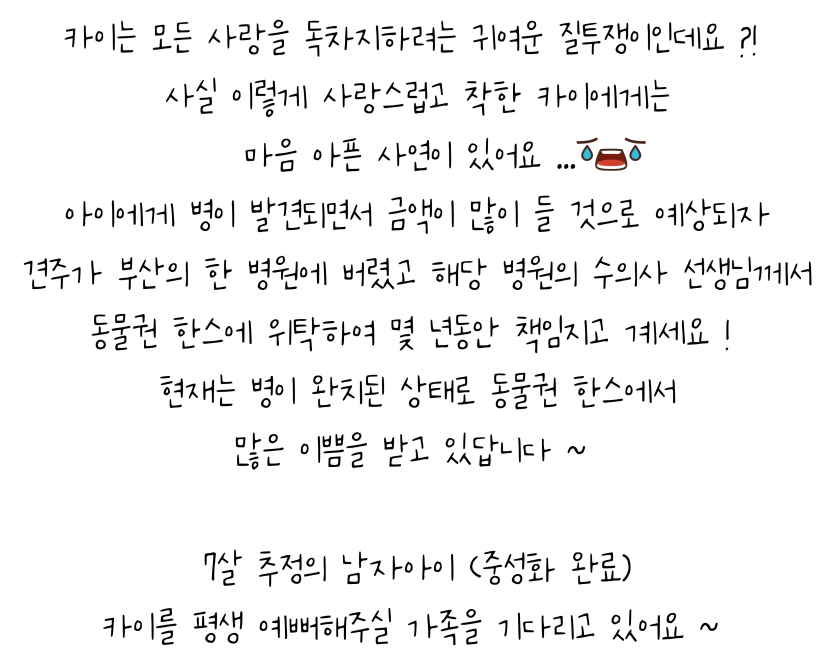 카이는 모든 사랑을 독차지하려는 귀여운 질투쟁이인데요 ?!
사실 이렇게 사랑스럽고 착한 카이에게는
마음 아픈 사연이 있어요 ...
아이에게 병이 발견되면서 금액이 많이 들 것으로 예상되자
견주가 부산의 한 병원에 버렸고 해당 병원의 수의사 선생님께서
동물권 한스에 위탁하여 몇 년동안 책임지고 계세요 !
현재는 병이 완치된 상태로 동물권 한스에서
많은 이쁨을 받고 있답니다 ~
7살 추정의 남자아이 (중성화 완료)
카이를 평생 예뻐해주실 가족을 기다리고 있어요 ~